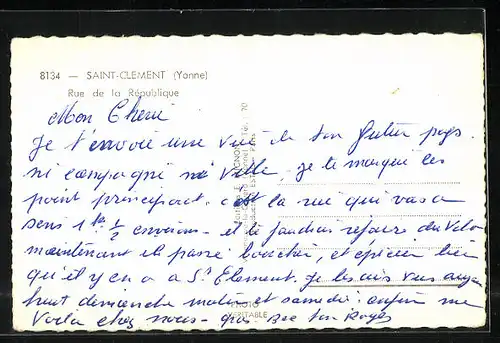 8134 — SAINT-CLEMENT (Yonne)
Rue de la République
Mon Cheri
Je t'envoie une vue de ton futur pays
ni campagne ni ville. je te marque les
point principaux. c'est la rue qui va a
sens 1 k 1/2 environ - et il faudrait refaire du velo
maintenant il passe boucher, et épicier bien
qu'il y en a a St Clement. Je les ais vus
haut dimanche matin et samedi. enfin me
Voila chez nous - gros
PHOTO
VERITABLE